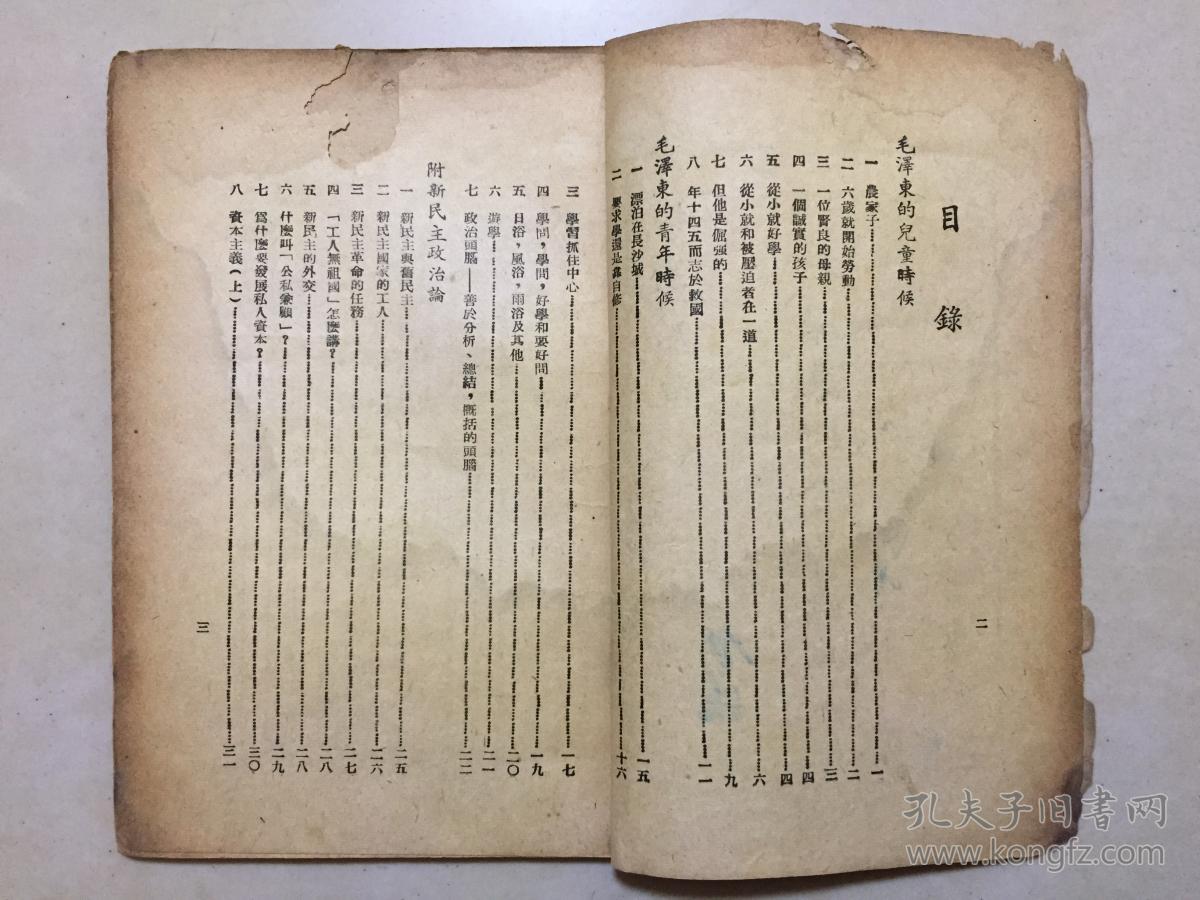 目錄
毛澤東的兒童時候
一 農家子……一
二 六歲就開始勞動……二
三 一位賢良的母親……三
四 一個誠實的孩子……四
五 從小就好學……四
六 從小就和被壓迫者在一道……六
七 但他是倔強的……九
八 年十四五而志於救國……一一
毛澤東的青年時候
一 漂泊在長沙城……一五
二 要求學還是靠自修……十六
二
三 學習抓住中心……一七
四 學問，學問，好學和要好問……一九
五 日浴，風浴，雨浴及其他……二〇
六 游學……二一
七 政治頭腦——善於分析、總結，概括的頭腦……二二
附新民主政治論
一 新民主與舊民主……二五
二 新民主國家的工人……二六
三 新民主革命的任務……二七
四 「工人無祖國」怎麼講？……二八
五 新民主的外交……二八
六 什麼叫「公私兼顧」？……二九
七 爲什麼要發展私人資本？……三〇
八 資本主義（上）……三一
三
孔夫子旧书网
www.kongfz.com